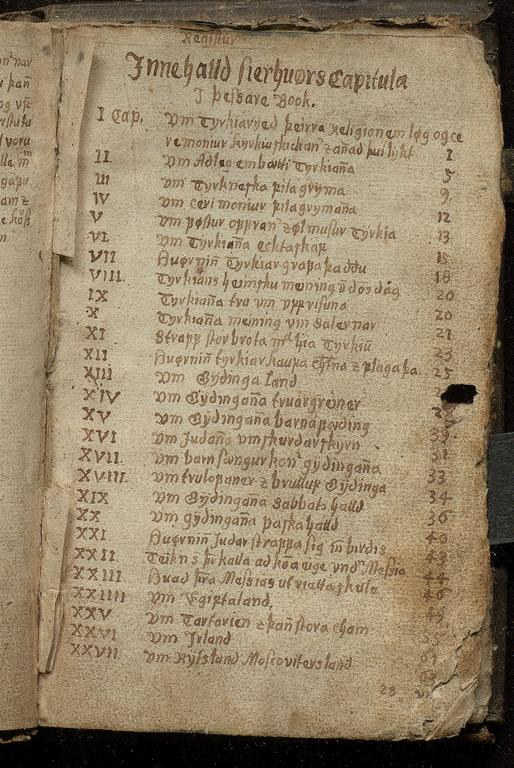 Registur
Innehalld sierhuørs Capitula
J þessare Book.
I Cap. Vm Tyrkiarved þeirra Religionem løg og ce
remoniur kyrkiu skickan z añad þui lijkt 1
II. Vm Adleg embætti Tyrkiaña 5
III Vm Tyrkneska pilagryma 9
IV Vm ceri moniur pilagrymaña 12
V Vm postur oppran zølmusur Tyrkia 13
VI. Vm Tyrkiaña ecktaskap 15
VII Huørniñ Tyrkiar grafa þa døðu 18
VIII. Tyrkians heimsku meining ū dómsdag 20
IX Tyrkiaña tru vm vpprisuna 20
X Tyrkiaña meining vm Salernar 21
XI Straff stor brota mā hia Tyrkiū 23
XII Huørniñ tyrkiar kaupa z plaga þa 25
XIII Vm Gydinga land
XIV Vm Gydingaña truargreiner
XV Vm Gydingaña barnafæding
XVI Vm Judaña vmskurdarskyrn 31
XVII. Vm barnsængurkon gydingaña
XVIII. Vm trulofaner z brullup Gydinga 33
XIX Vm Gydingaña Sabbats halld 34
XX Vm gydingaña paskahalld 36
XXI Huørniñ Judar straffa sig iñbirdis 40
XXII Teikn s kalla ad koma eige vnd Messia 43
XXIII Huad Messias utrietta skule 44
XXIIII Vm Egiptaland. 46
XXV Vm Tartarien z þañ stora Cham
XXVI Vm Irland
XXVII Vm Rysland Moscovitersland
28